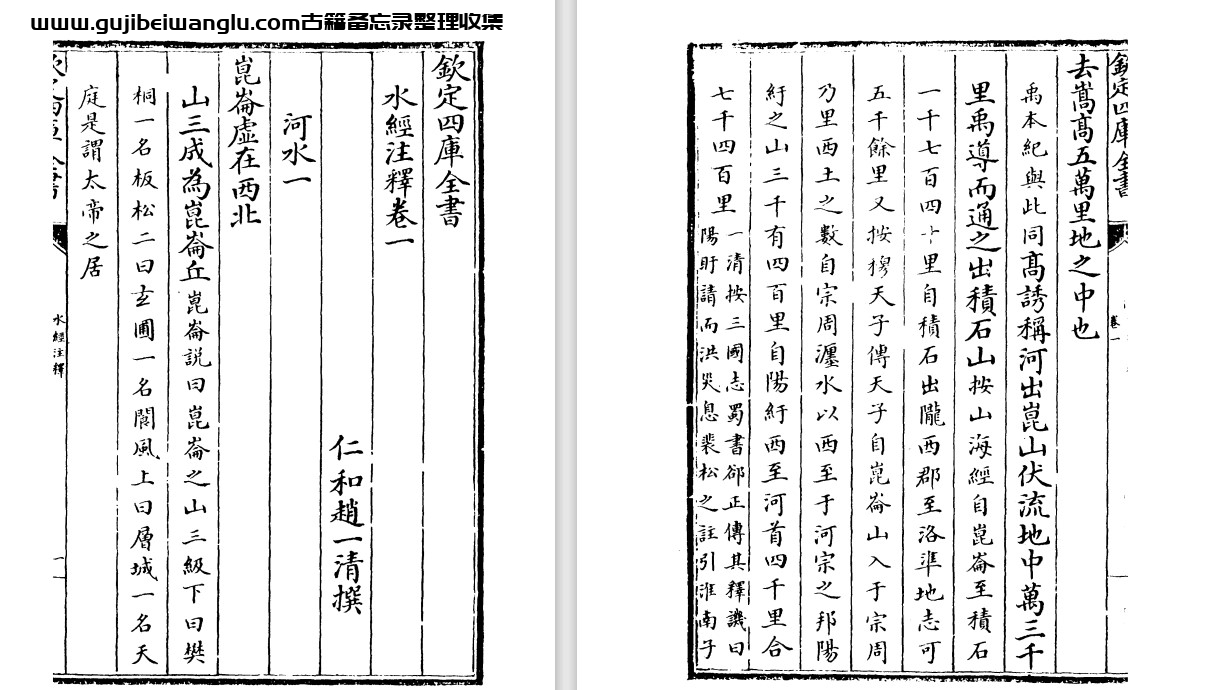 www.gujibeiwanglu.com古籍备忘录整理收集
欽定四庫全書
水經注釋卷一
仁和趙一清撰
河水一
崑崙虛在西北
山三成為崑崙丘崑崙説曰崑崙之山三級下曰樊
桐一名板松二曰玄圃一名閬風上曰層城一名天
庭是謂太帝之居
水經注釋
一
欽定四庫全書
卷一
去嵩髙五萬里地之中也
禹本紀與此同髙誘稱河出崑山伏流地中萬三千
里禹導而通之出積石山按山海經自崑崙至積石
一千七百四十里自積石出隴西郡至洛準地志可
五千餘里又按穆天子傳天子自崑崙山入于宗周
乃里西土之數自宗周瀍水以西至于河宗之邦陽
紆之山三千有四百里自陽紆西至河首四千里合
七千四百里
一清按三國志蜀書郤正傳其釋譏曰
陽盱請而洪災息裴松之註引淮南子